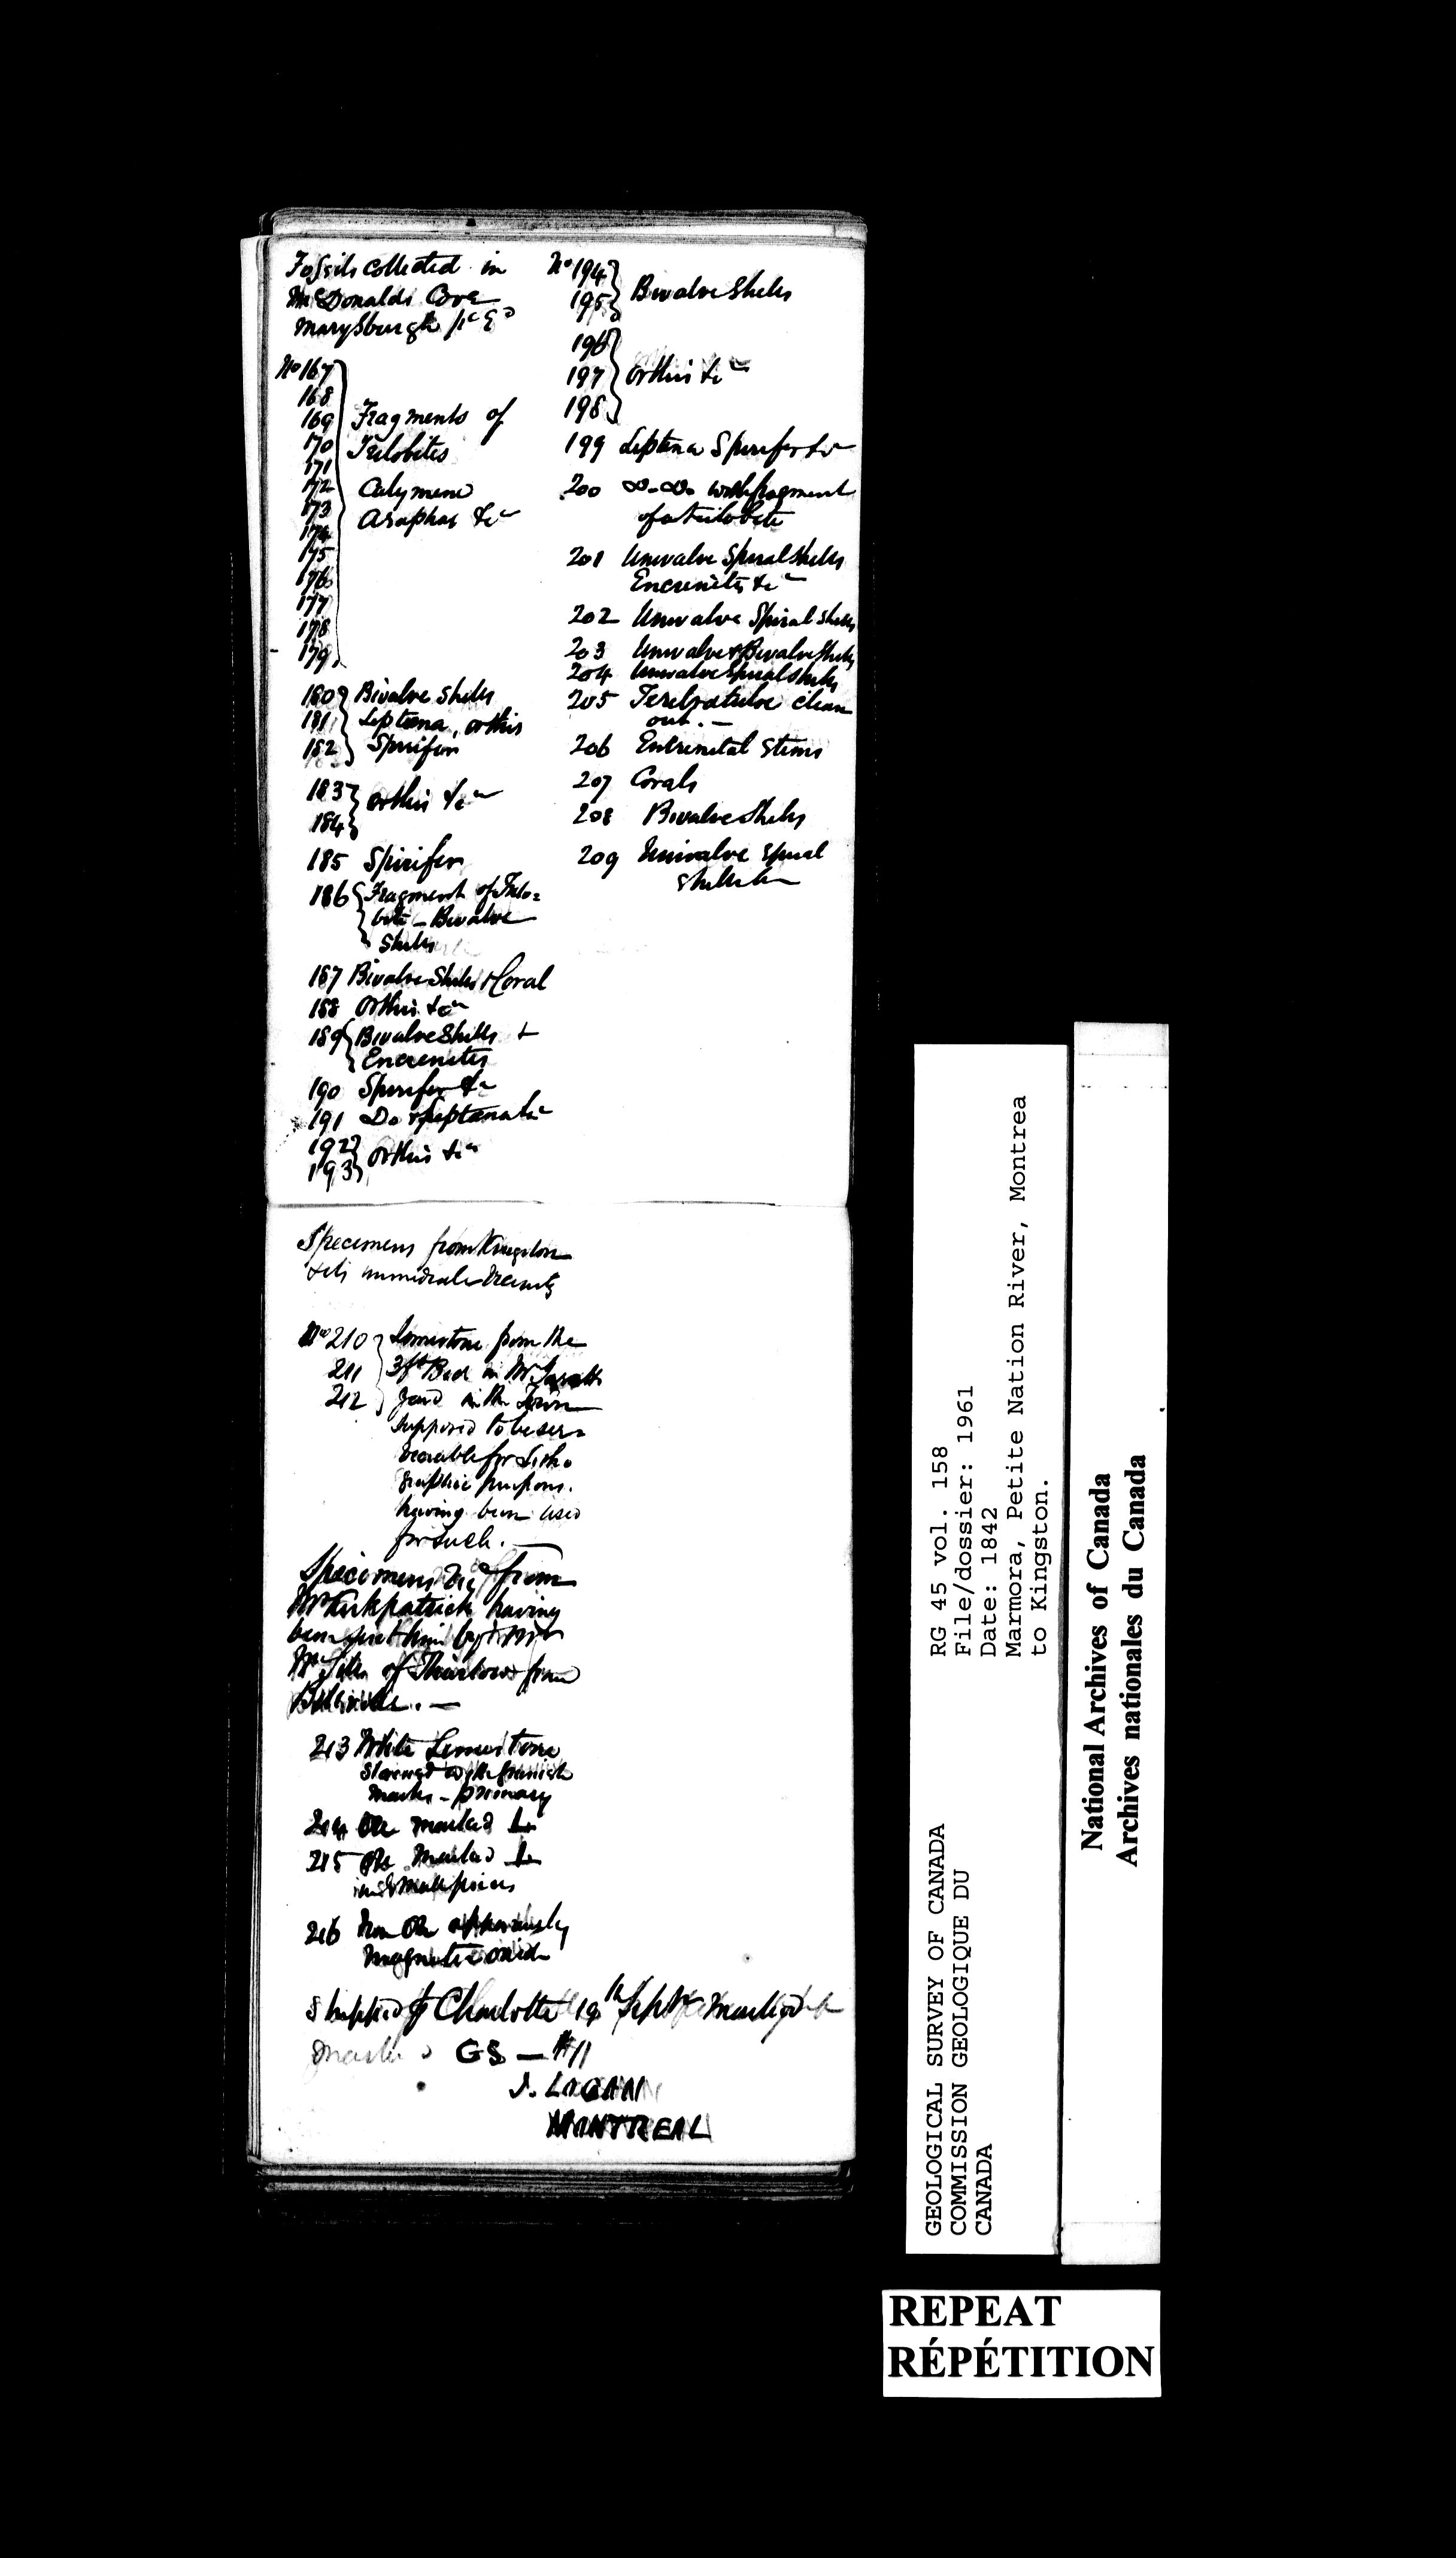 Fossils collected in
McDonalds Cove
Marysburgh P. Ed
No 167
168
169 Fragments of
170 Trilobites
171
172 Calymene
173 Asaphus &c
174
175
176
177
178
179
180 Bivalve shells
181 Leptena, orthis
182 Spirifer
183 orthis &c
184
185 Spirifer
186 Fragment of Trilo=
bite - Bivalve
Shells
187 Bivalve Shells & Coral
188 Orthis &c
189 Bivalve Shells &
Encrenites
190 Spirifer &c
191 Do & Leptena &c
192 Orthis &c
193
No 194 Bivalve Shells
195
196
197 Orthis &c
198
199 Leptena Spirifer &c
200 Do. Do. with fragment
of a trilobite
201 Univalve Spiral shells
Encrenites &c
202 Univalve Spiral shells
203 Univalve & Bivalve Shells
204 Univalve Spiral shells
205 Terebratulae clean
out. -
206 Encrinital Stems
207 Corals
208 Bivalve Shells
209 Univalve Spiral
shells &c
Specimens from Kingston
& its immediate vicinity
No 210 Limestone from the
211 3ft Bed in Mr
212 yard in the Town
supposed to be ser=
viceable for Litho
graphic purposes.
having been used
for such. -
Specimens from
Mr Kirkpatrick having
been sent him by
Mr of Thurlow from
Belleville. -
213 White Limestone
with greenish
marks - primary
214 Ore marked
215 Ore marked
in small pieces
216 Iron Ore apparently
magnetic oxide
Shipped Charlotte 19th Sept marked
marked GS - #11
LOGAN
MONTREAL
GEOLOGICAL SURVEY OF CANADA
COMMISSION GEOLOGIQUE DU
CANADA
RG 45 vol. 158
File/dossier: 1961
Date: 1842
Marmora, Petite Nation River, Montrea
to Kingston.
National Archives of Canada
Archives nationales du Canada
REPEAT
RÉPÉTITION